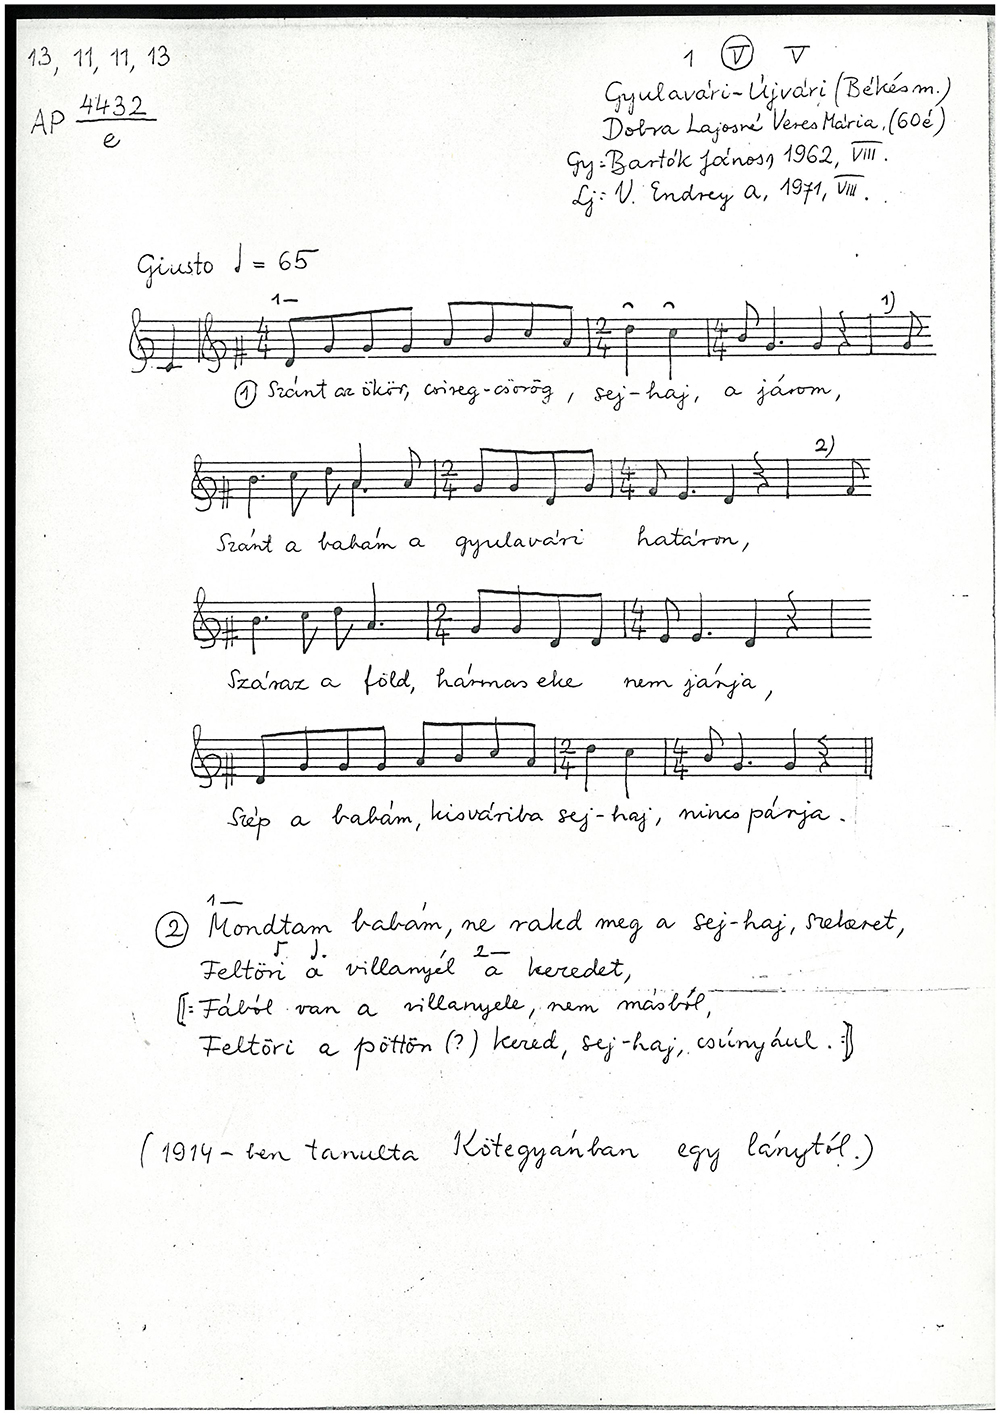 13, 11, 11, 13
1 V V
AP 4432/e
Gyulavári-Újvári (Békés m.)
Dobra Lajosné Veres Mária, (60é)
Gy: Bartók János, 1962, VIII.
Lj: V. Endrey A, 1971, VIII.
Giusto ♩ = 65
1—
4/4 2/4 4/4 1)
① Szánt az ökör, csireg-csörög, sej-haj, a járom,
2/4 4/4 2)
Szánt a babám a gyulavári határon,
2/4 4/4
Száraz a föld, hármas eke nem járja,
2/4 4/4
Szép a babám, kisváriba sej-haj, nincs párja.
1—
② Mondtam babám, ne rakd meg a sej-haj, szekeret,
♪ ♩. 2—
Feltöri a villanyél a kezedet,
[: Fából van a villanyele, nem másból,
Feltöri a pöttön (?) kezed, sej-haj, csúnyául. :]
(1914-ben tanulta Kötegyánban egy lánytól.)